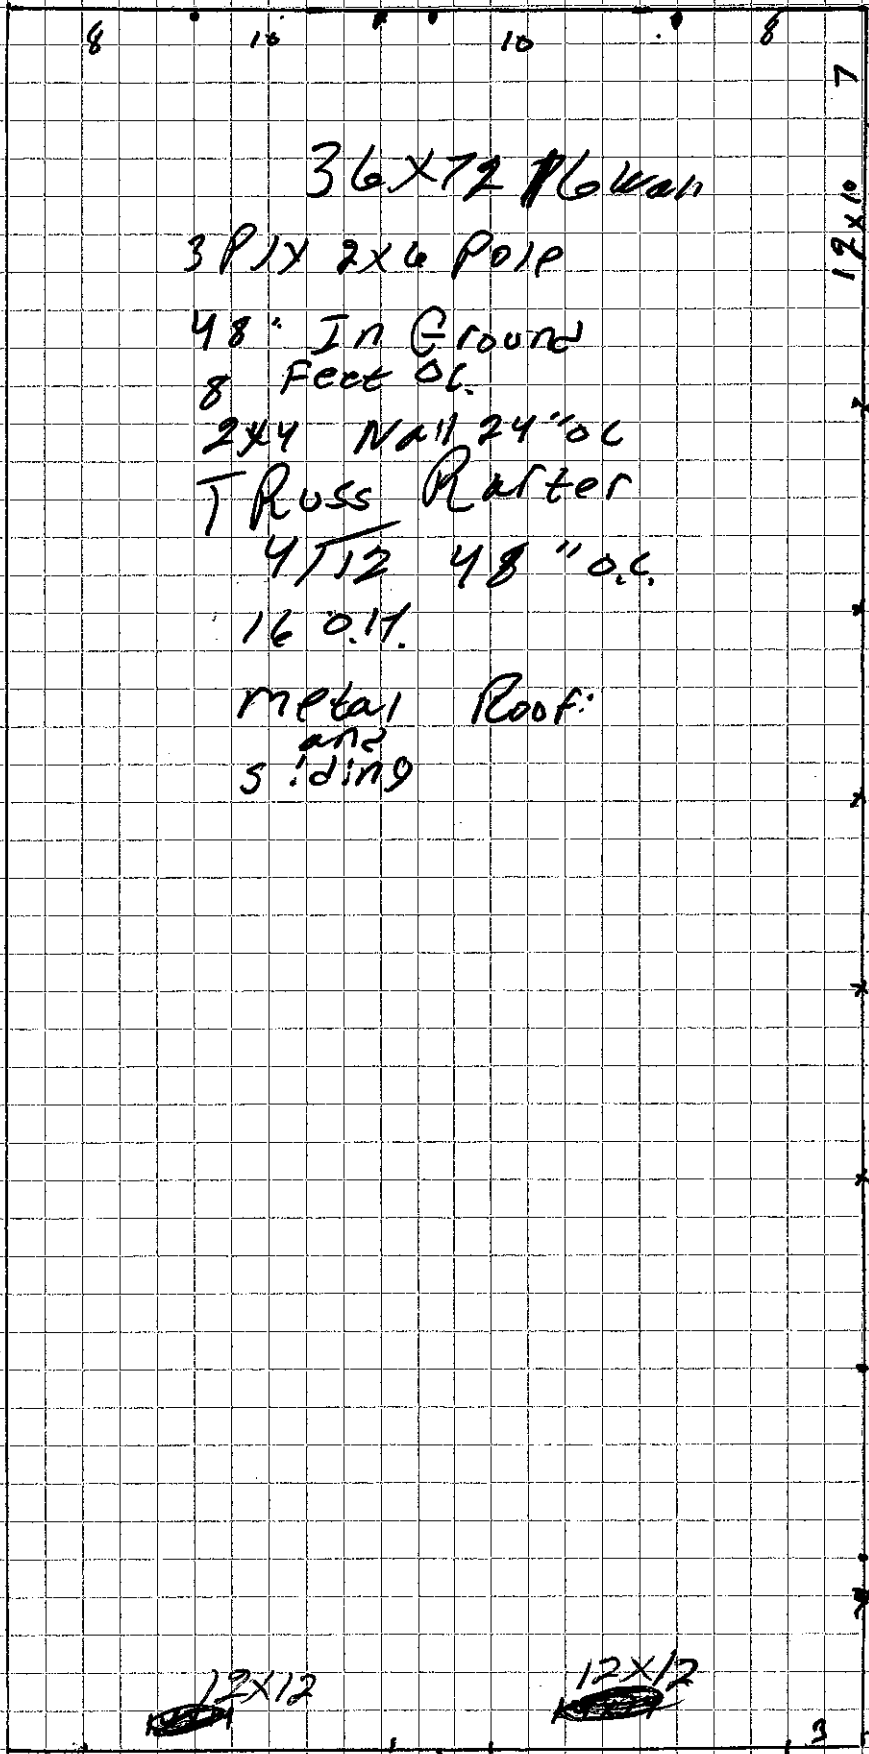 8 10 10 8
7
36X72 16 Wall
12x10
3 Ply 2x6 Pole
48" In Ground
8 Feet OC.
2x4 Nail 24" oc
TRuss Rafter
4/12 48" o.c.
16 O.H.
metal Roof
and
siding
12X12 12X12
3